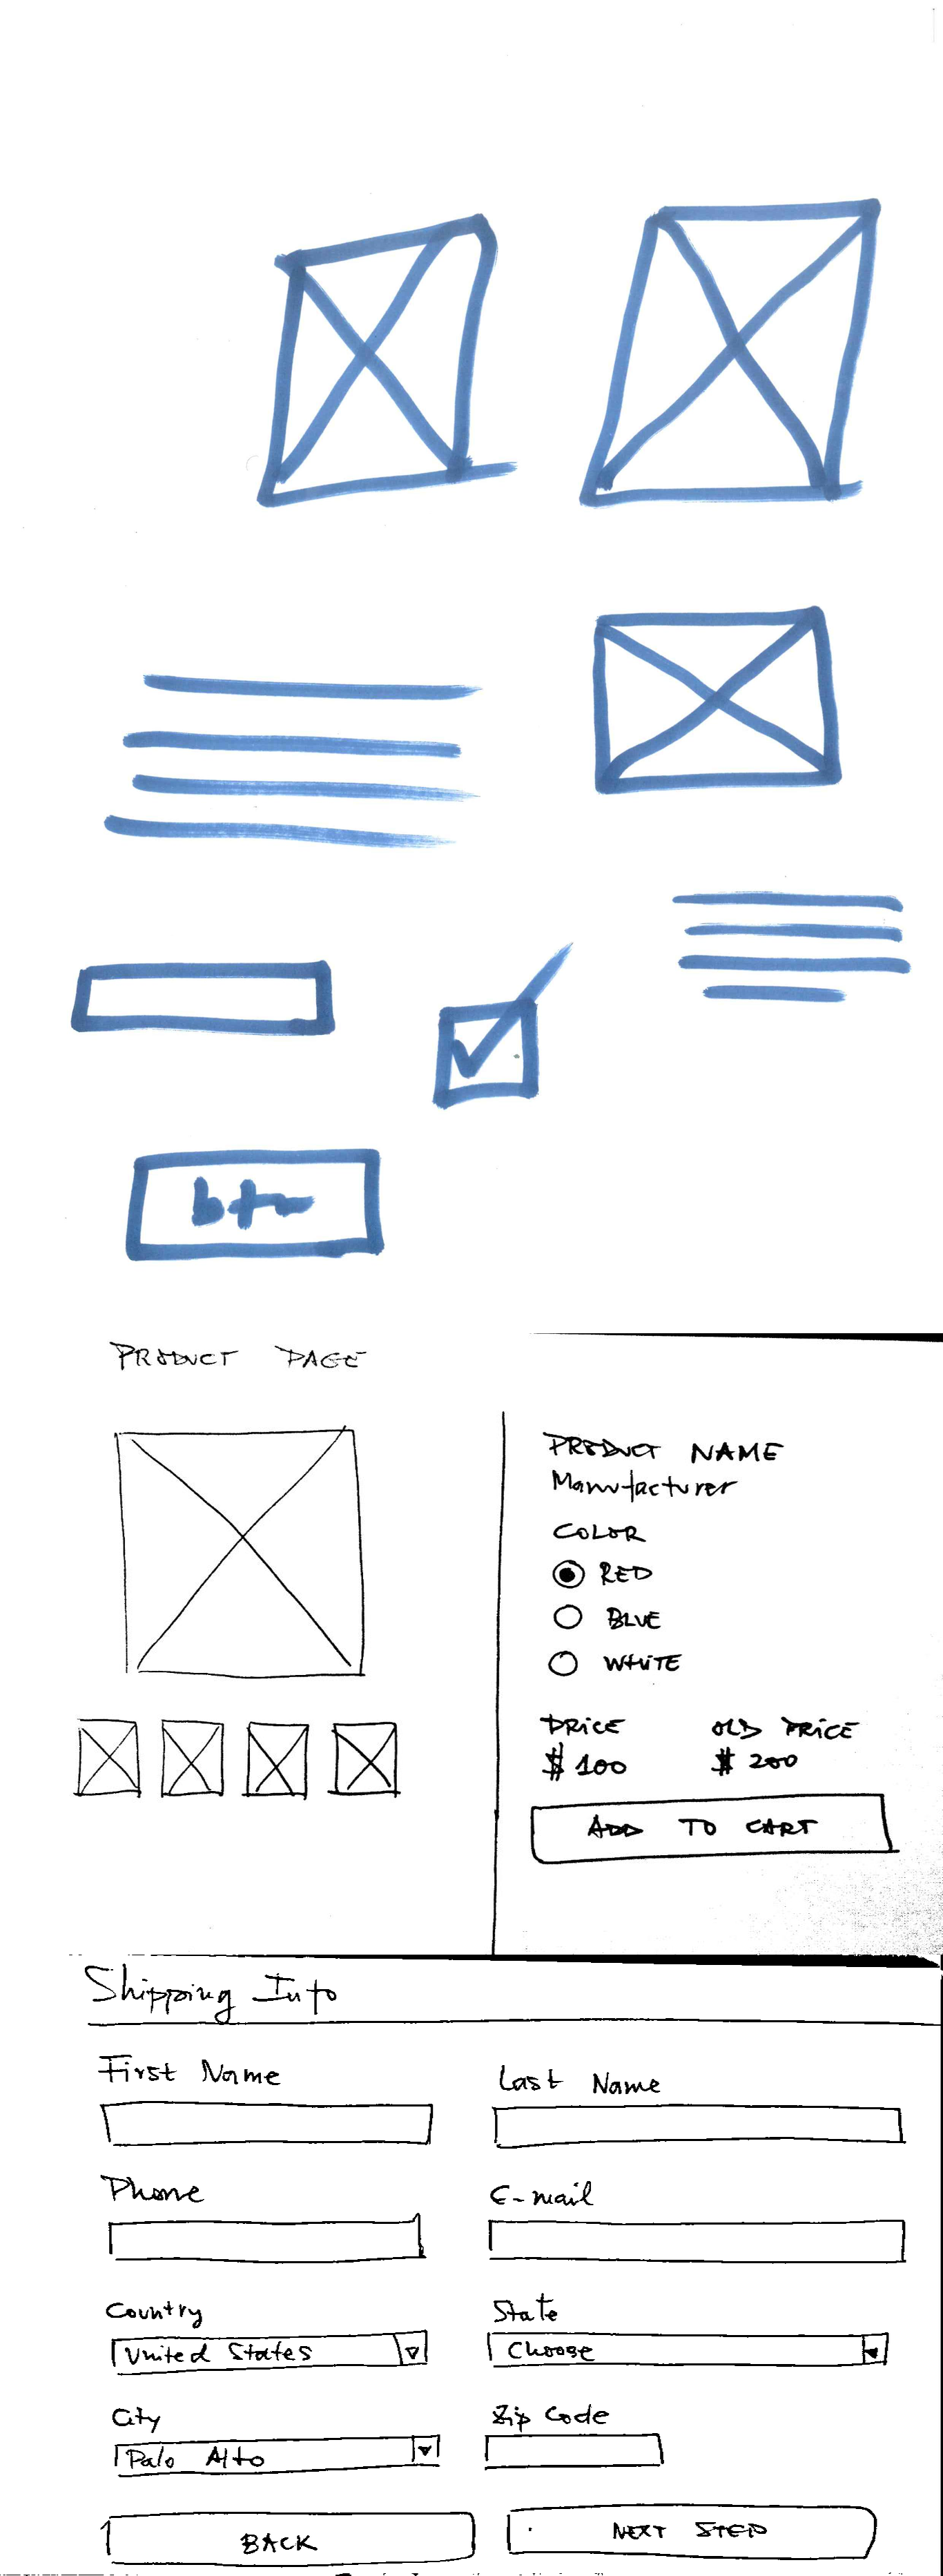 btn
PRODUCT PAGE
PRODUCT NAME
Manufacturer
COLOR
RED
BLUE
WHITE
PRICE OLD PRICE
$ 100 $ 200
ADD TO CART
Shipping Info
First Name Last Name
Phone E-mail
Country State
United States Choose
City Zip Code
Palo Alto
BACK NEXT STEP